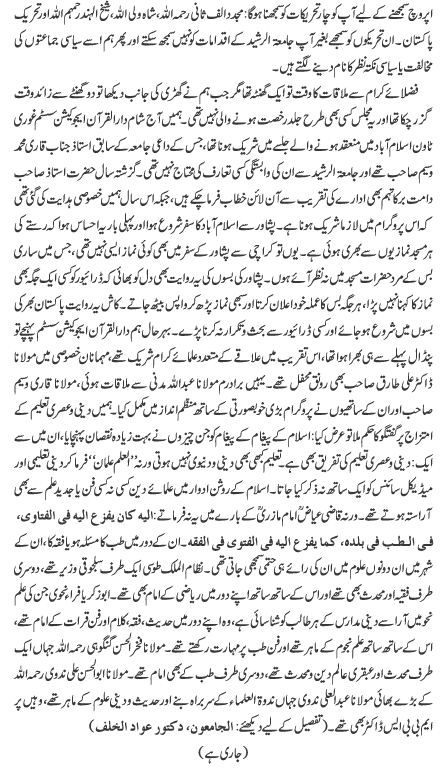 اپروچ سمجھنے کے لیے آپ کو چار تحریکات کو سمجھنا ہوگا: مجدد الف ثانی رحمہ اللہ، شاہ ولی اللہ، شیخ الہند رحمہم اللہ اور تحریک
پاکستان۔ ان تحریکوں کو سمجھے بغیر آپ جامعۃ الرشید کے اقدامات کو نہیں سمجھ سکتے اور پھر ہم اسے سیاسی جماعتوں کی
مخالفت یا سیاسی نکتہ نظر کا نام دینے لگتے ہیں۔
فضلائے کرام سے ملاقات کا وقت تو ایک گھنٹہ تھا مگر جب ہم نے گھڑی کی جانب دیکھا تو دو گھنٹے سے زائد وقت
گزر چکا تھا اور یہ مجلس کسی بھی طرح جلد رخصت ہونے والی نہیں تھی۔ ہمیں آج شام دار القرآن ایجوکیشن سسٹم غوری
ٹاون اسلام آباد میں منعقد ہونے والے جلسے میں شریک ہونا تھا، جس کے داعی جامعہ کے سابق استاذ جناب قاری محمد
وسیم صاحب تھے اور جامعۃ الرشید سے ان کی وابستگی کسی تعارف کی محتاج نہیں تھی۔ گزشتہ سال حضرت استاذ صاحب
دامت برکاتہم بھی ادارے کی تقریب سے آن لائن خطاب فرما چکے ہیں، جبکہ اس سال ہمیں خصوصی ہدایت کی گئی تھی
کہ اس پروگرام میں لازما شریک ہونا ہے۔ پشاور سے اسلام آباد کا سفر شروع ہوا اور پہلی بار یہ احساس ہوا کہ رستے کی
ہر مسجد نمازیوں سے بھری ہوئی تھی۔ یوں تو کراچی سے پشاور کے سفر میں بھی کوئی نماز ایسی نہیں تھی، جس میں ساری
بس کے مرد حضرات مسجد میں نہ نظر آئے ہوں۔ پشاور کی بسوں کی یہ روایت بھی دل کو بھائی کہ ڈرائیور کو کسی ایک جگہ بھی
نماز کا کہنا نہیں پڑا، ہر جگہ بس کا عملہ خود اعلان کرتا اور سبھی نماز پڑھ کر واپس بیٹھ جاتے۔ کاش یہ روایت پاکستان بھر کی
بسوں میں شروع ہوجائے اور کسی ڈرائیور سے بحث و تکرار نہ کرنا پڑے۔ بہرحال ہم دار القرآن ایجوکیشن سسٹم پہنچے تو
پنڈال پہلے سے ہی بھرا ہوا تھا، اس تقریب میں علاقے کے متعدد علمائے کرام شریک تھے، مہمانان خصوصی میں مولانا
ڈاکٹر علی طارق صاحب بھی رونق محفل تھے۔ یہیں برادرم مولانا عبداللہ مدنی سے ملاقات ہوئی، مولانا قاری وسیم
صاحب اور ان کے ساتھیوں نے پروگرام بڑی خوبصورتی کے ساتھ منظم انداز میں مکمل کیا۔ ہمیں دینی وعصری تعلیم کے
امتزاج پر گفتگو کا حکم ملا تو عرض کیا: اسلام کے پیغام کے پیغام کو جن چیزوں نے بہت زیادہ نقصان پہنچایا، ان میں سے
ایک: دینی وعصری تعلیم کی تفریق بھی ہے۔ تعلیم کبھی بھی دینی ودنیوی نہیں ہوتی ورنہ ”العلم علمان“ فرما کر دینی تعلیمی اور
میڈیکل سائنس کو ایک ساتھ نہ ذکر کیا جاتا۔ اسلام کے روشن ادوار میں علمائے دین کسی نہ کسی فن یا جدید علم سے بھی
آراستہ ہوتے تھے۔ ورنہ قاضی عیاضؒ امام مازریؒ کے بارے میں یہ نہ فرماتے: الیه کان یفزع الیه فی الفتاوی،
فی الطب فی بلده، کما یفزع الیه فی الفتوی فی الفقه۔ ان کے دور میں طب کا مسئلہ ہو یا فقہ کا، ان کے
شہر میں ان دونوں علوم میں ان کی رائے ہی حتمی سمجھی جاتی تھی۔ نظام الملک طوسی ایک طرف سلجوقی وزیر تھے، دوسری
طرف فقیہ اور محدث بھی تھے اور اس کے ساتھ ساتھ اپنے دور میں ریاضی کے امام بھی تھے۔ ابوزکریا فراء نحوی جن کی علم
نحو میں آراء سے دینی مدارس کے ہر طالب کو شناسائی ہے، وہ اپنے دور میں حدیث، فقہ، کلام اور فن قرات کے امام تھے،
اس کے ساتھ ساتھ علم نجوم کے ماہر تھے اور فن طب پر مہارت رکھتے تھے۔ مولانا فخر الحسن گنگوہی رحمہ اللہ جہاں ایک
طرف محدث اور عبقری عالم دین ومحدث تھے، دوسری طرف طب کے بھی امام تھے۔ مولانا ابوالحسن علی ندوی رحمہ اللہ
کے بڑے بھائی مولانا عبدالعلی ندوی جہاں ندوۃ العلماء کے سربراہ بنے اور حدیث و دینی علوم کے ماہر تھے، وہیں پر
ایم بی بی ایس ڈاکٹر بھی تھے۔ (تفصیل کے لیے دیکھئے: الجامعون، دکتور عواد الخلف)
(جاری ہے)